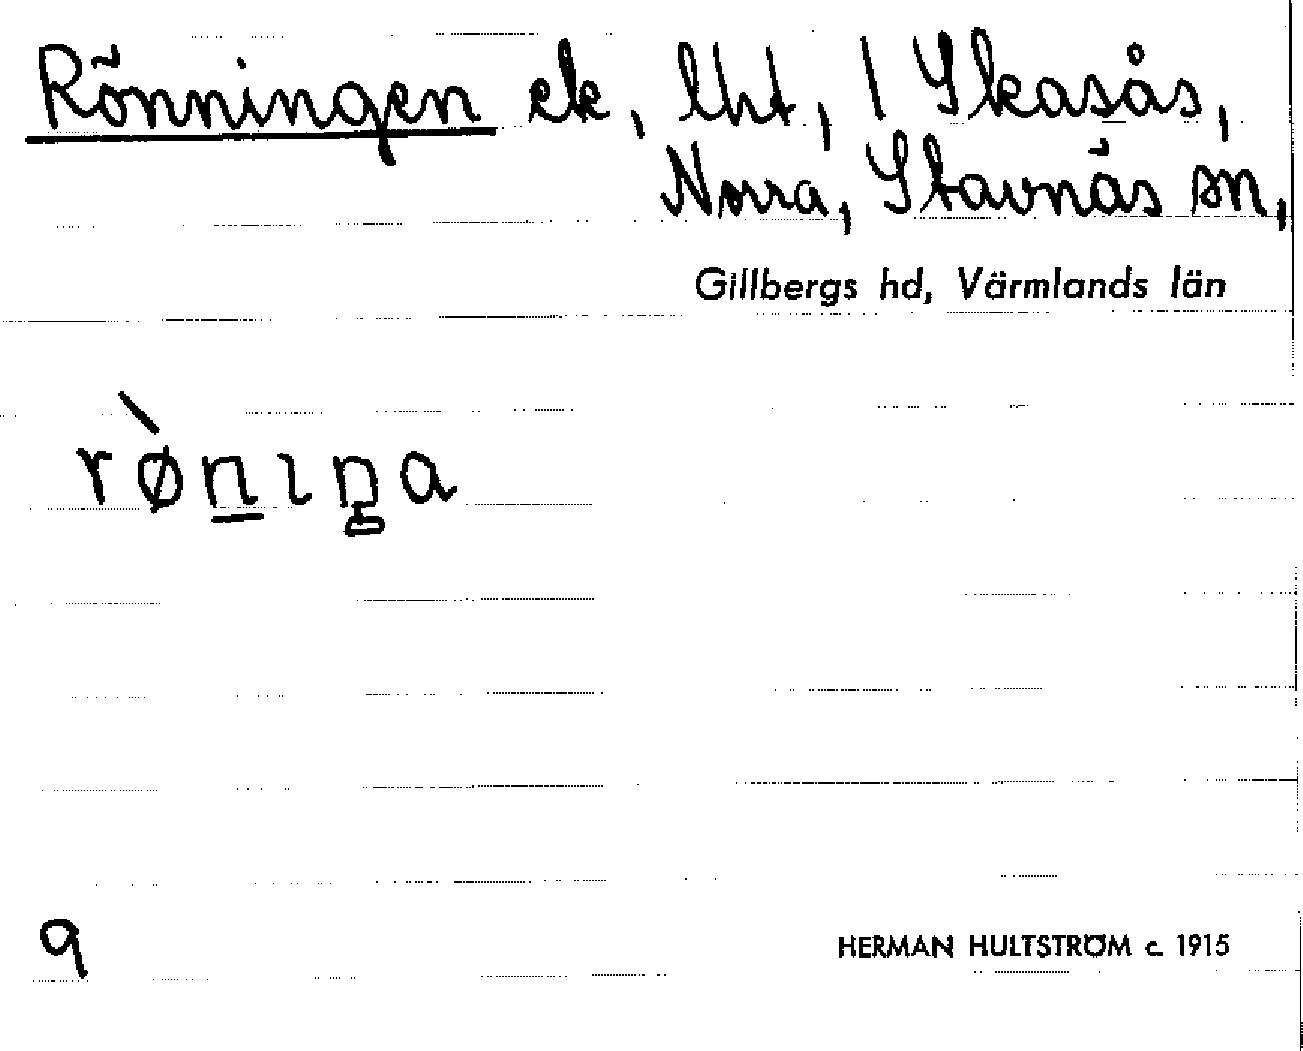 Rönningen ek, lht, 1 Skasås,
Norra, Stavnäs sn,
Gillbergs hd, Värmlands län
rø̀n̲ıŋa
9
HERMAN HULTSTRÖM c. 1915